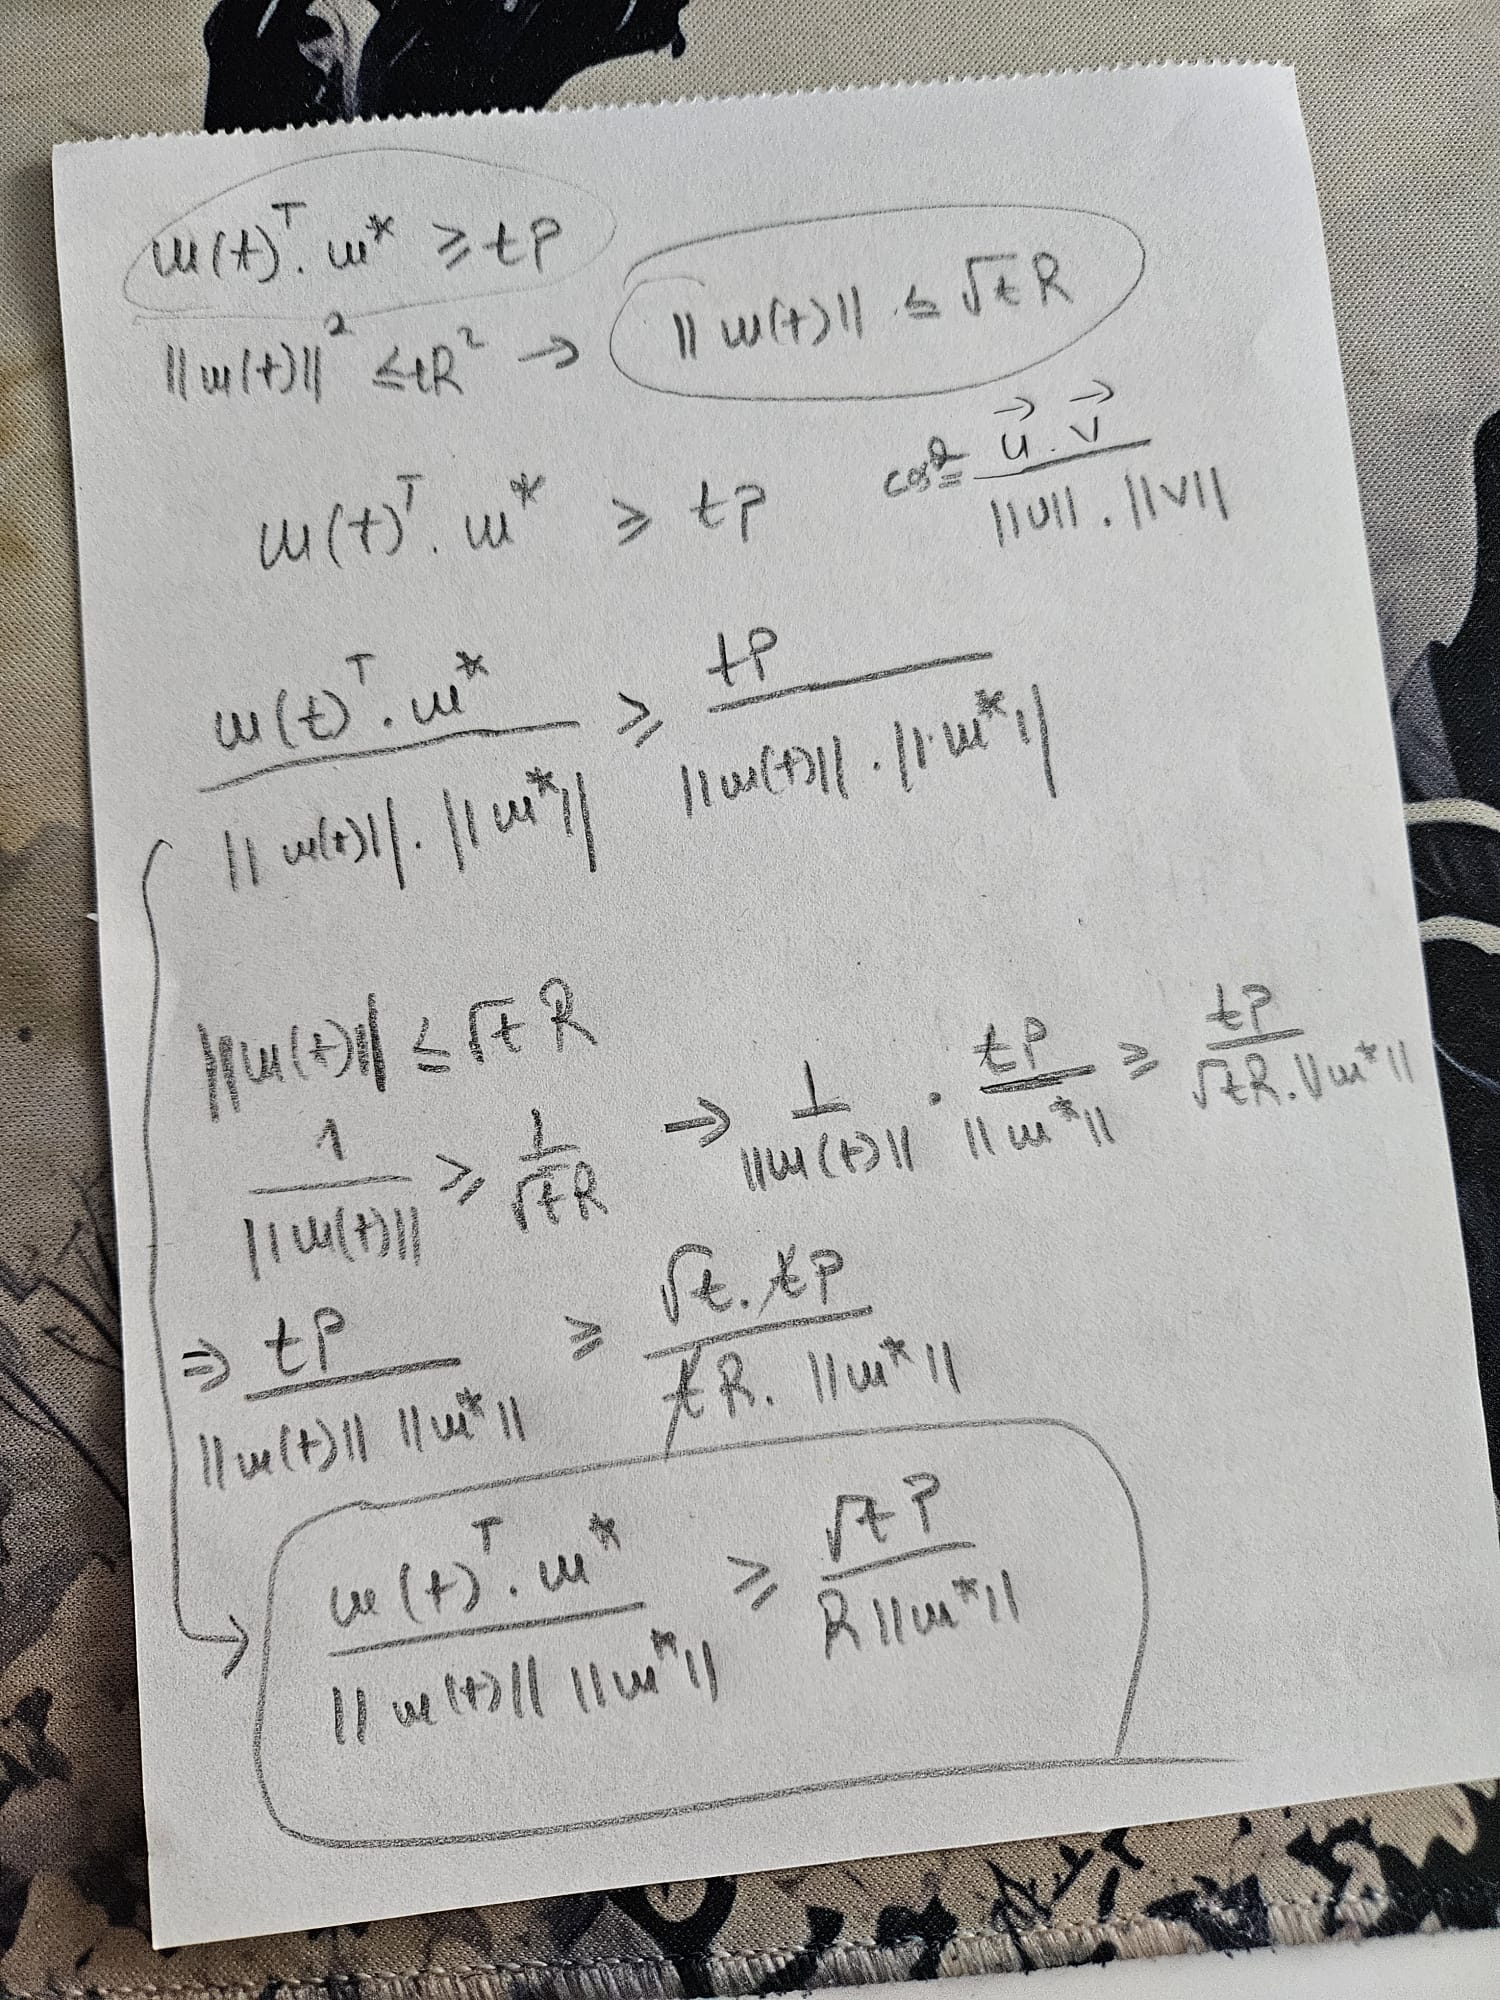 w(t)ᵀ. w* ≥ tP
||w(t)||² ≤ tR² → ||w(t)|| ≤ √t R
w(t)ᵀ. w* ≥ tP
cosθ = u⃗ . v⃗ / ||U|| . ||V||
w(t)ᵀ. w* / ||w(t)||. ||w*|| ≥ tP / ||w(t)|| . ||w*||
||w(t)|| ≤ √t R
1 / ||w(t)|| ≥ 1 / √t R → 1 / ||w(t)|| . tP / ||w*|| ≥ tP / √t R. ||w*||
⇒ tP / ||w(t)|| ||w*|| ≥ √t. tP / tR. ||w*||
w(t)ᵀ. w* / ||w(t)|| ||w*|| ≥ √t P / R ||w*||